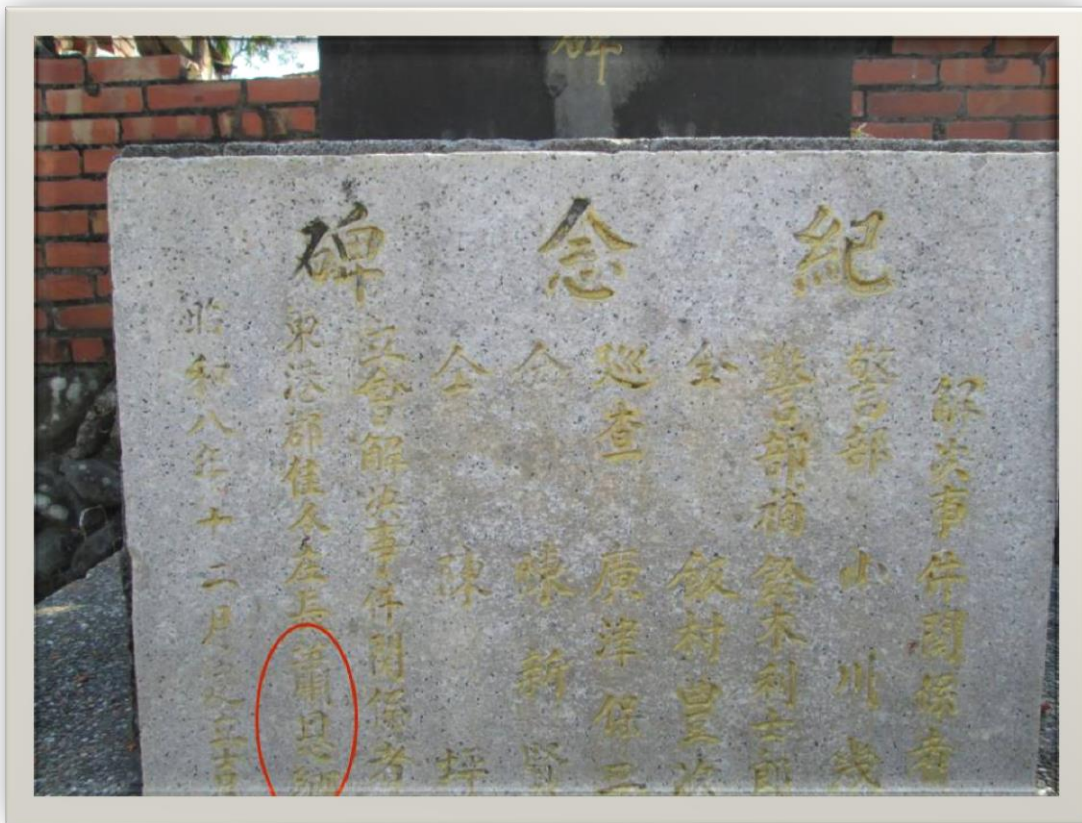 碑
紀念碑
解決事件関係者
警部 山川
警部補 鈴木利士郎
仝 飯村豊次
巡查 廣津保三
仝 陳新賢
仝 陳 坪
立會解決事件関係者
東港郡佳冬庄長 蕭恩
昭和八年十二月 立